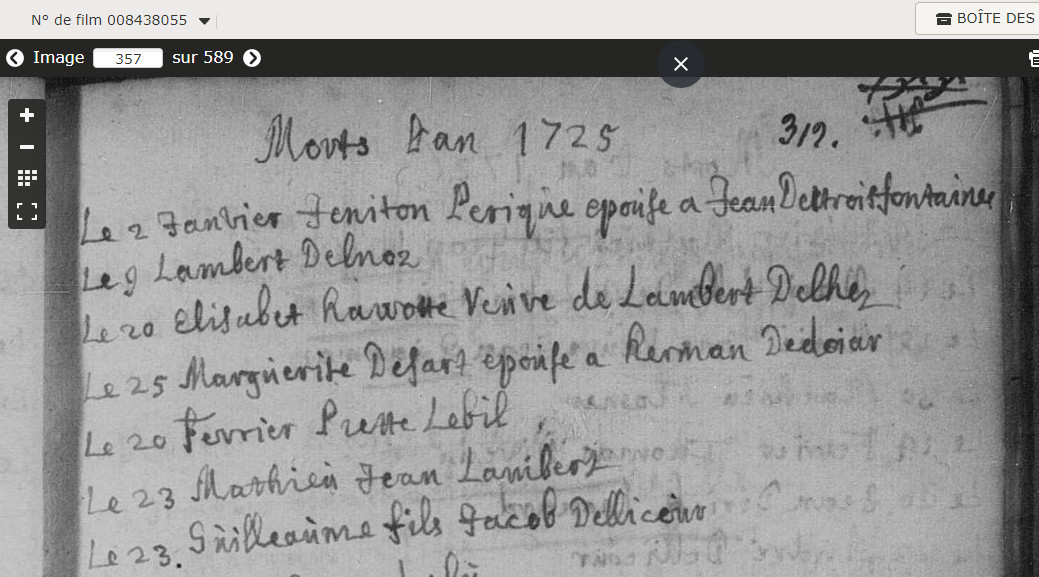 N° de film 008438055
BOÎTE DES
Image 357 sur 589
Morts Lan 1725 319.
Le 2 Janvier Jeniton Perique epouse a Jean Deltroisfontaines
Le 9 Lambert Delnoz
Le 20 Elisabet Rawotte Veuve de Lambert Delhez
Le 25 Marguerite Defart epouse a Herman Dedoiar
Le 20 Fevrier Piette Lebil
Le 23 Mathieu Jean Lambert
Le 23. Guilleaume fils Jacob Dellicour